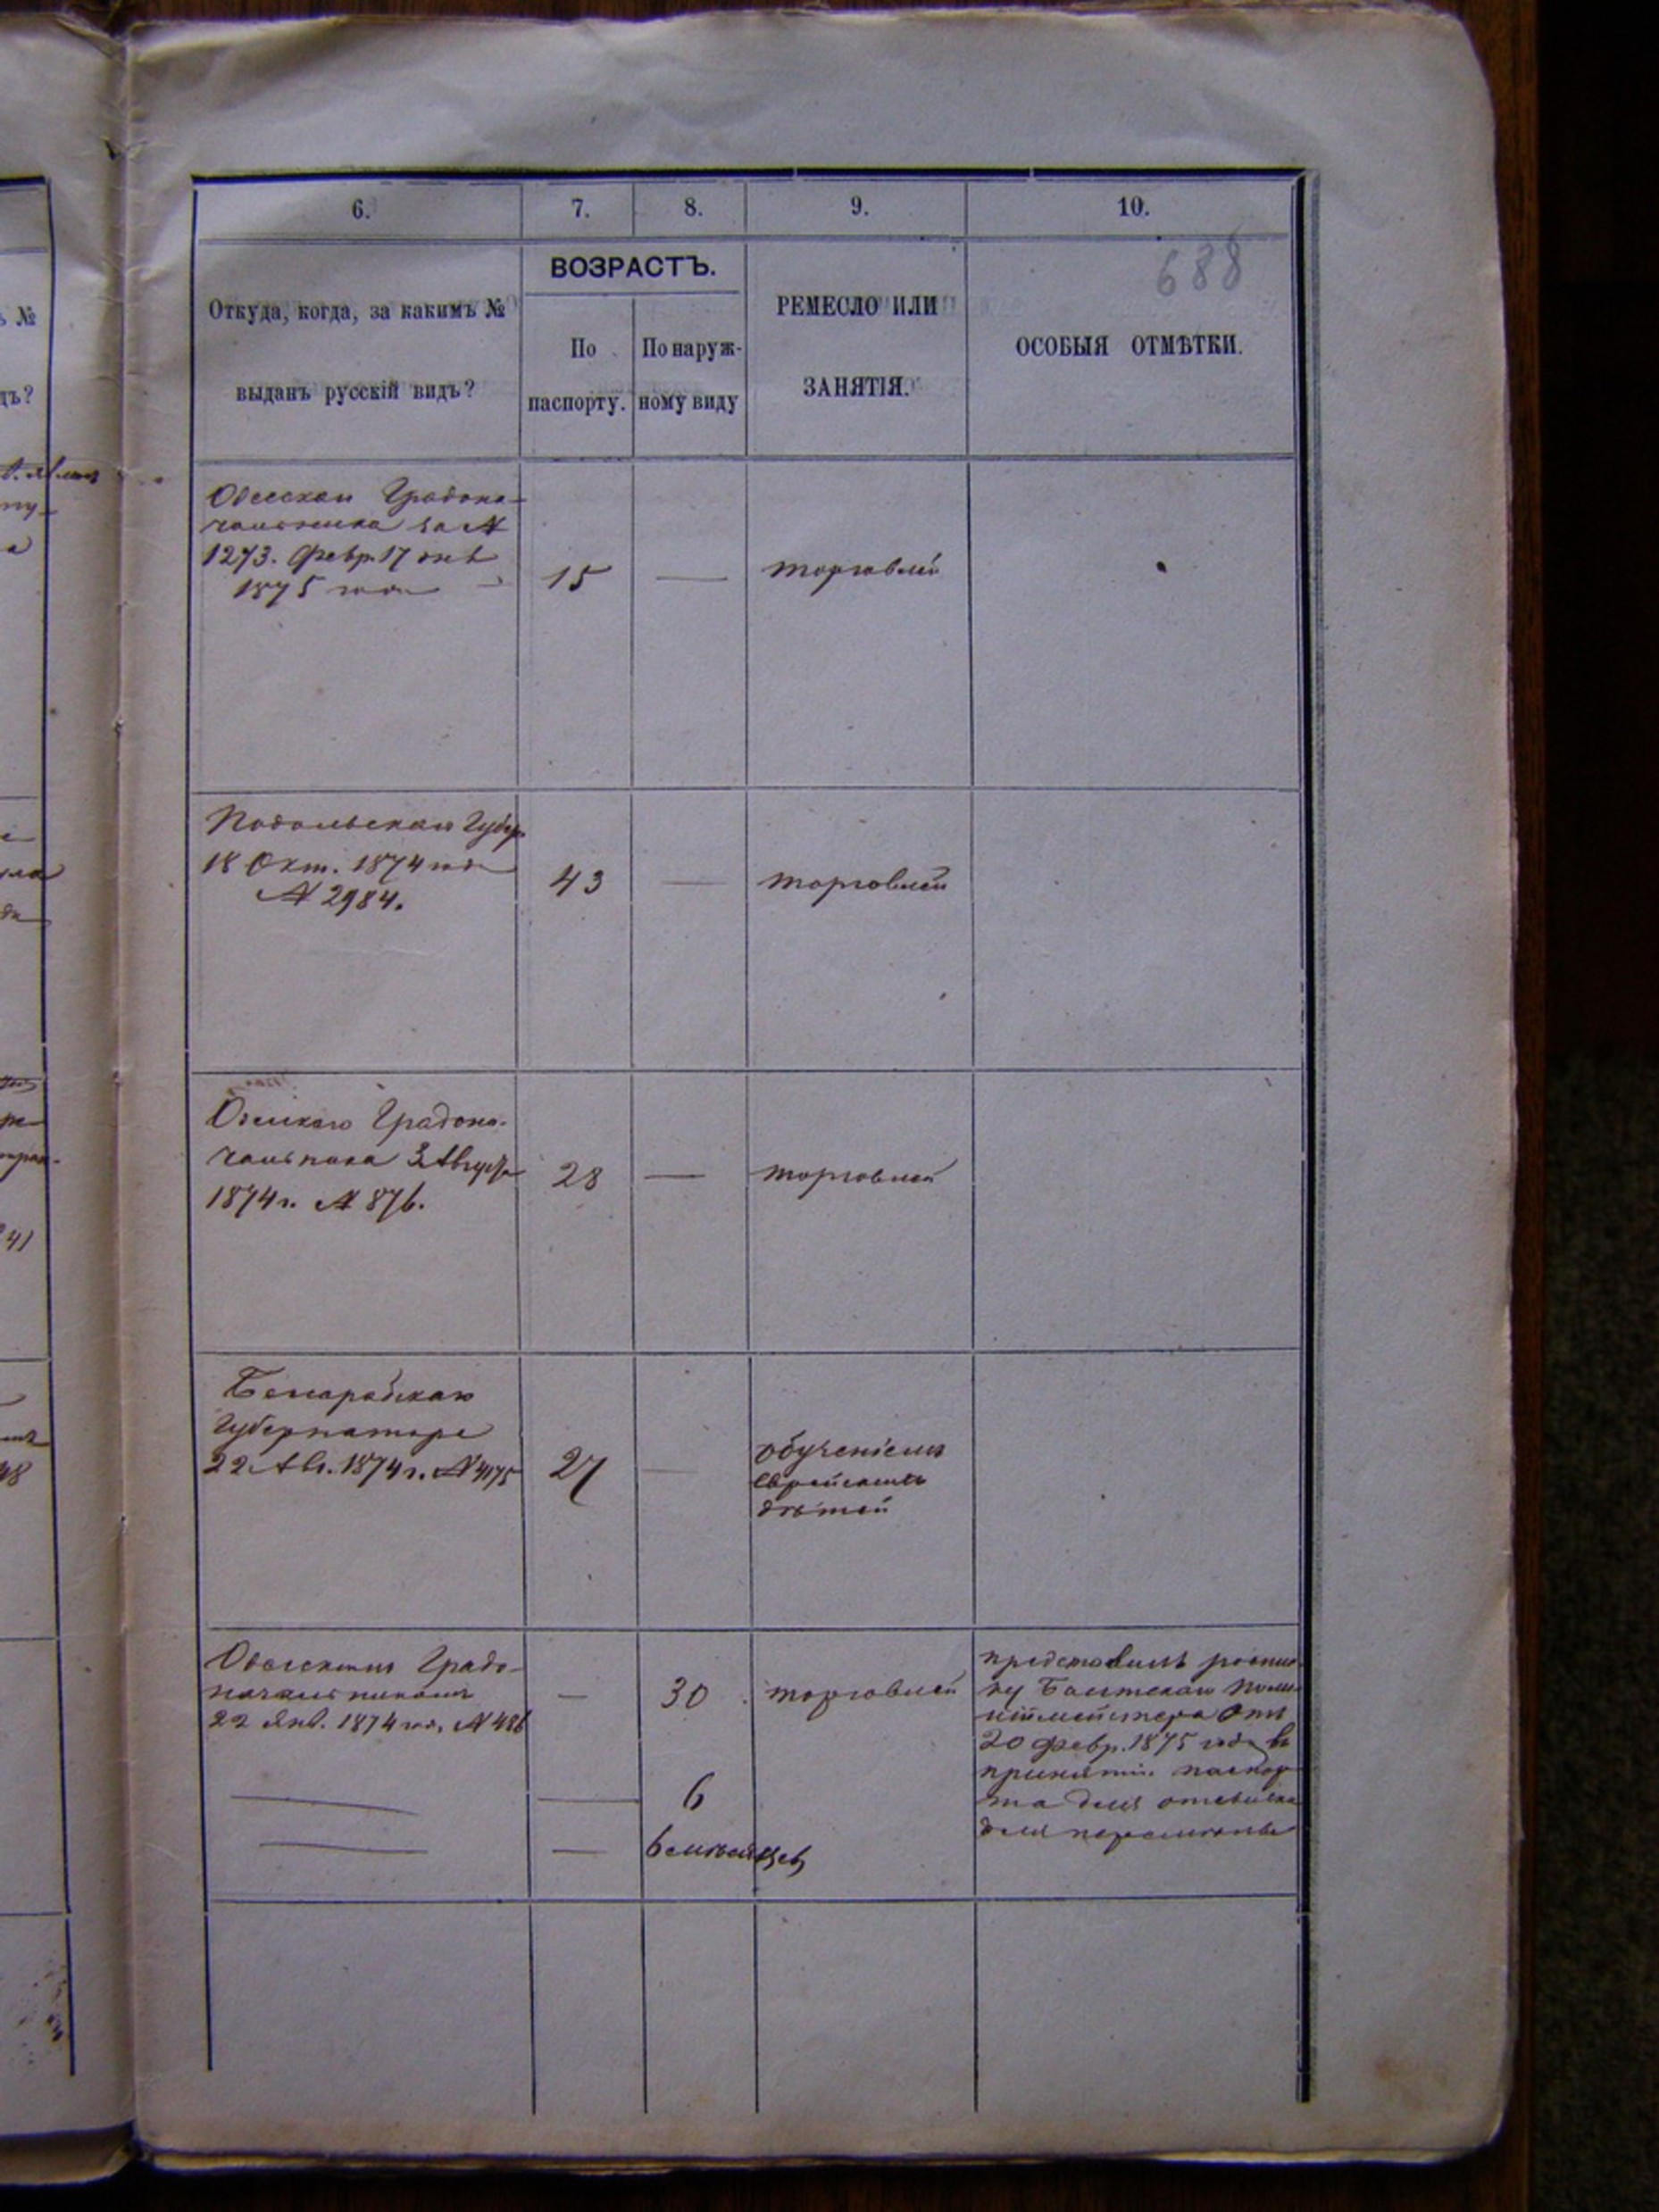 6. 7. 8. 9. 10.
688
ВОЗРАСТЪ.
Откуда, когда, за какимъ №
выданъ русскій видъ?
По
паспорту.
По наруж-
ному виду
РЕМЕСЛО ИЛИ
ЗАНЯТІЯ.
ОСОБЫЯ ОТМѢТКИ.
№
дъ?
Одесскаго Градона-
чальника за №
1273. Февр. 17 дня
1875 года
15 — торговлей
Подольскаго Губер.
18 Окт. 1874 года
№ 2984.
43 — торговлей
Одесскаго Градона-
чальника 3 Августа
1874 г. № 876.
28 — торговлей
Бессарабскаго
Губернатора
22 Авг. 1874 г. № 4175
27 —
обученіемъ
еврейскихъ
дѣтей
Одесскимъ Градо-
начальникомъ
22 Янв. 1874 год. № 486
— 30 торговлей
— 6
— 6 мѣсяцев
представилъ роспис-
ку Балтскаго поли-
ціймейстера отъ
20 Февр. 1875 года въ
принятіи паспор-
та для отсылки
для перемѣны
41
48